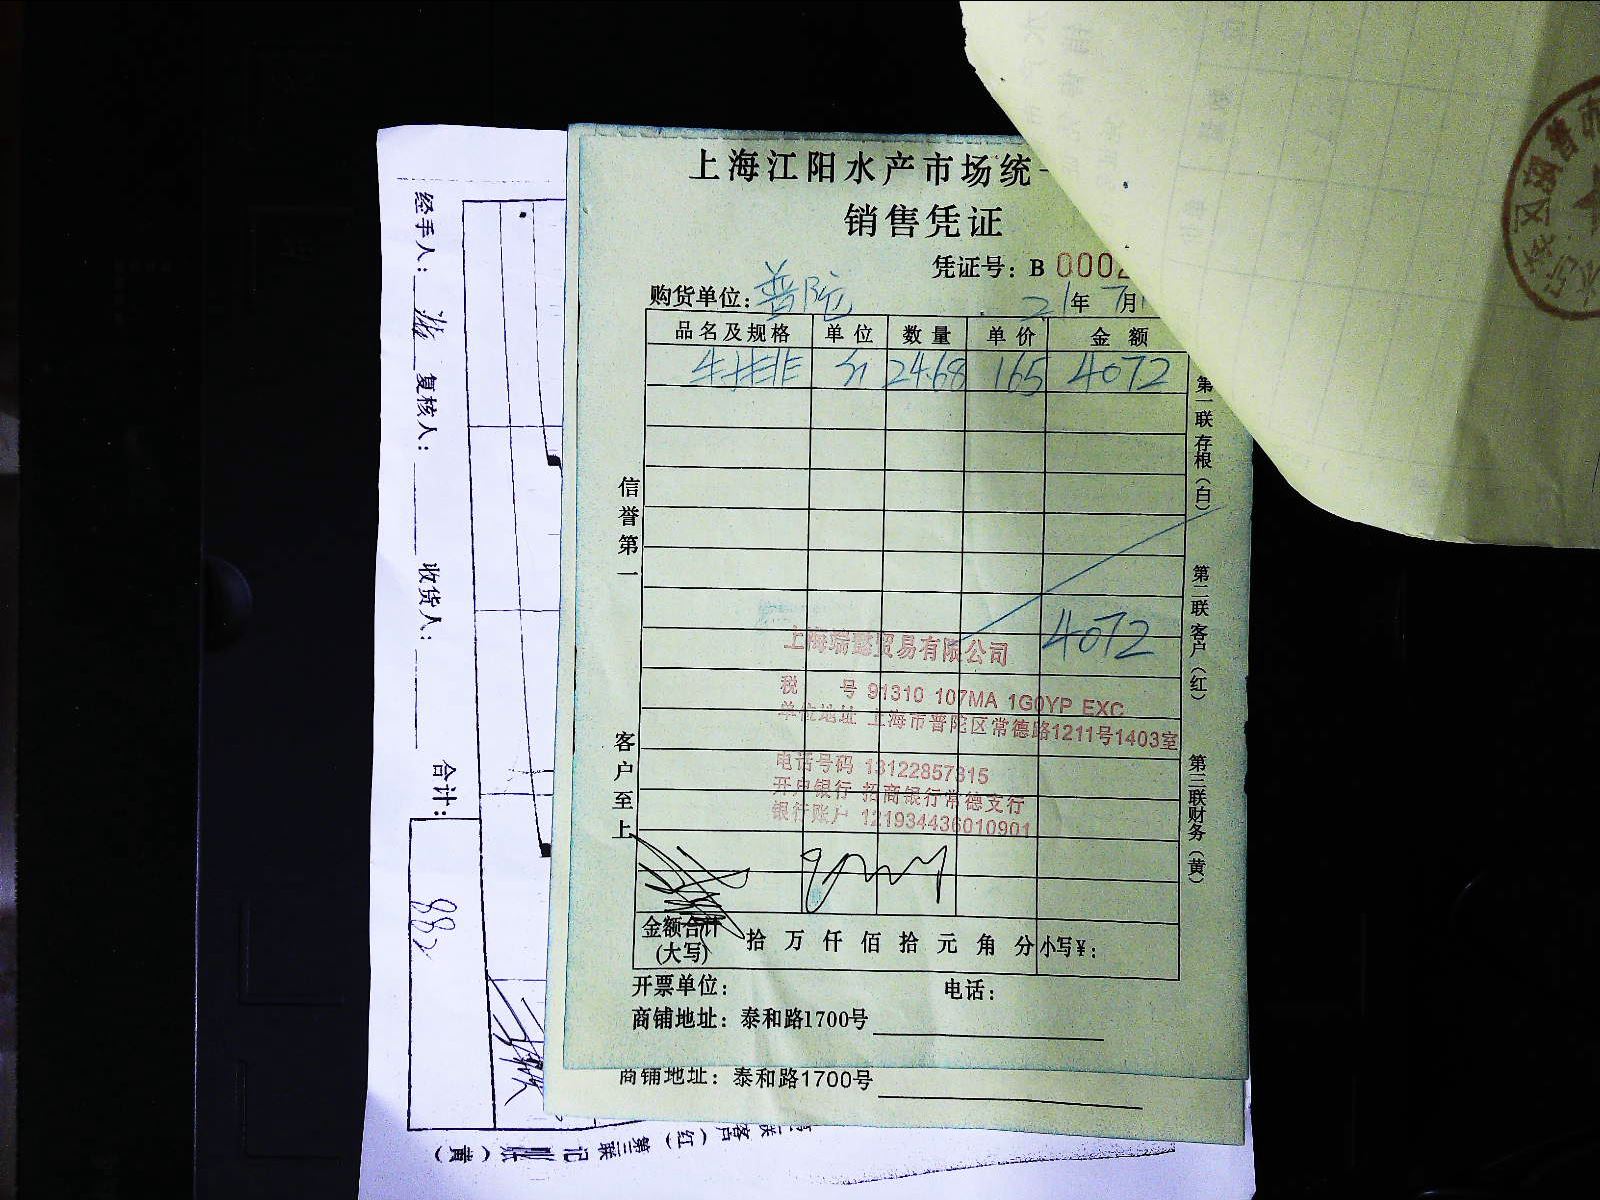 上海江阳水产市场统一
销售凭证
凭证号：B 0002
购货单位：普陀 21年 7月
品名及规格 单位 数量 单价 金额
牛排 24.68 165 4072
4072
信誉第一
客户至上
第一联存根（白）
第二联客户（红）
第三联财务（黄）
上海瑞懿贸易有限公司
税 号 91310 107MA 1G0YP EXC
单位地址 上海市普陀区常德路1211号1403室
电话号码 13122857815
开户银行 招商银行常德支行
银行账户 121934436010901
金额合计 拾 万 仟 佰 拾 元 角 分 小写¥：
(大写)
开票单位： 电话：
商铺地址：泰和路1700号
商铺地址：泰和路1700号
经手人： 复核人： 收货人： 合计：
882
联客户（红） 第三联记 （黄）